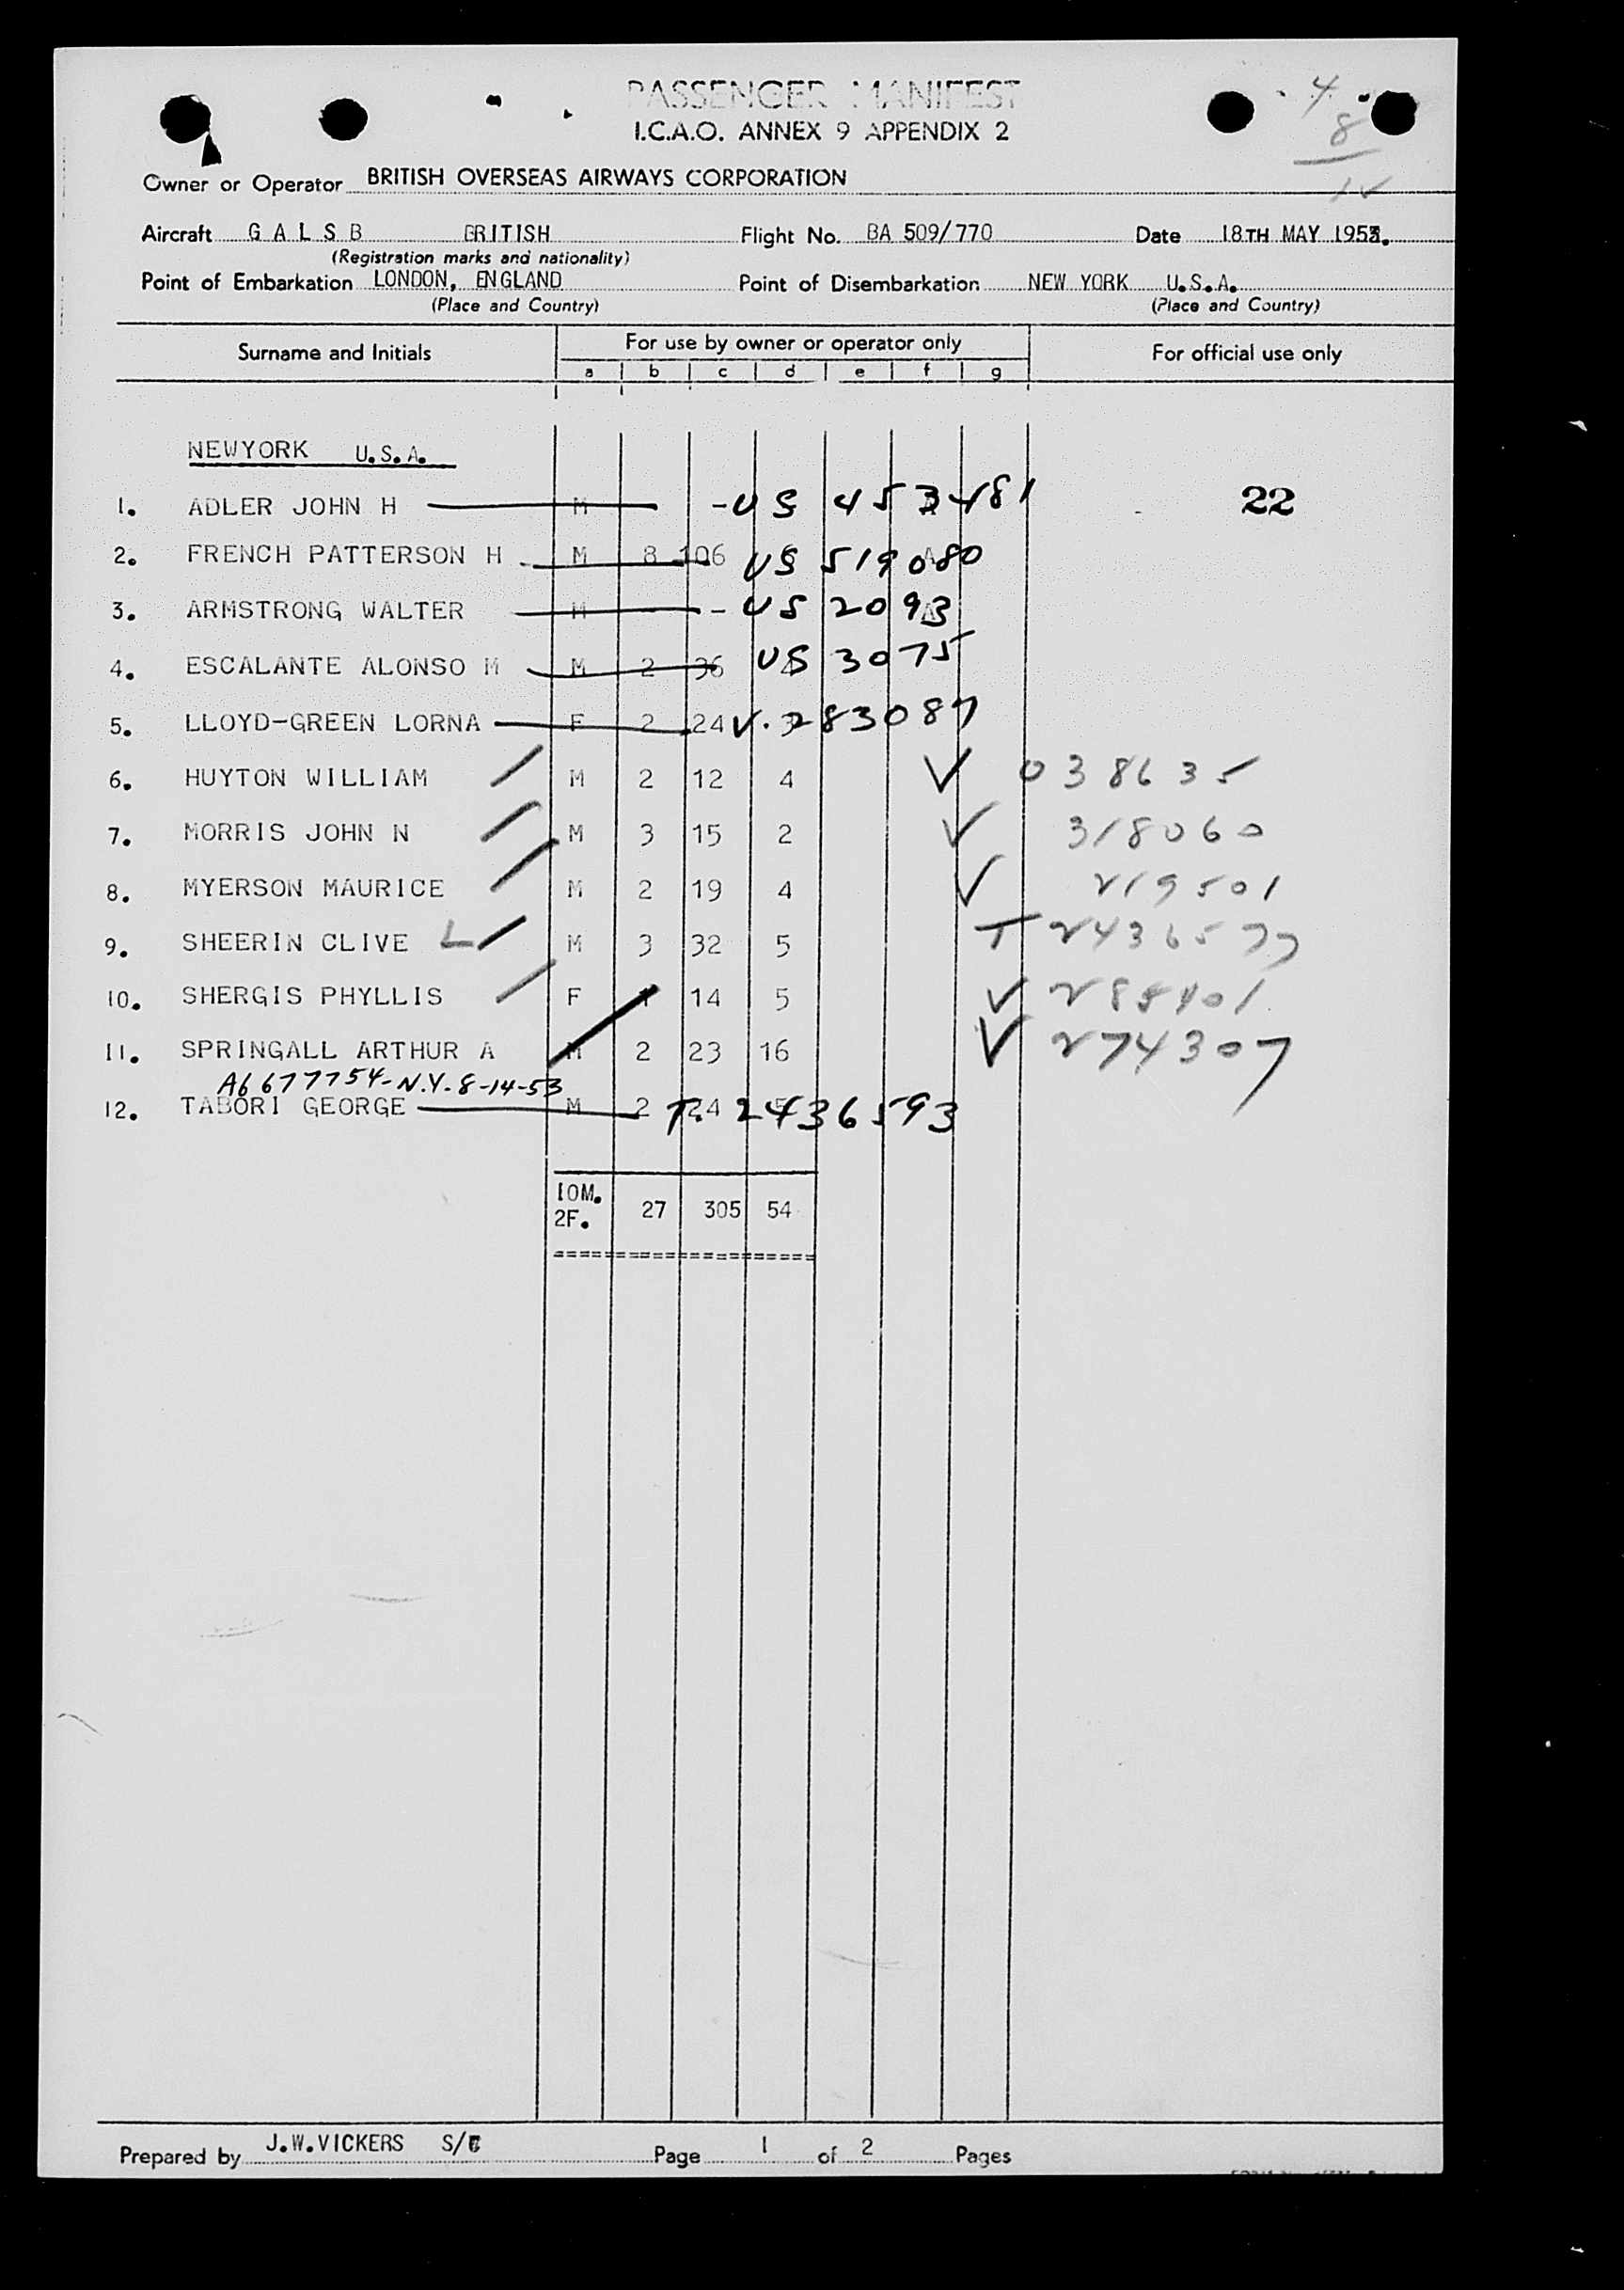 PASSENGER MANIFEST
I.C.A.O. ANNEX 9 APPENDIX 2
4
8
Owner or Operator BRITISH OVERSEAS AIRWAYS CORPORATION
Aircraft G A L S B BRITISH Flight No. BA 509/770 Date 18TH MAY 1953.
(Registration marks and nationality)
Point of Embarkation LONDON, ENGLAND Point of Disembarkation NEW YORK U.S.A.
(Place and Country) (Place and Country)
Surname and Initials For use by owner or operator only For official use only
a b c d e f g
NEWYORK U.S.A.
1. ADLER JOHN H M - US 453481 22
2. FRENCH PATTERSON H M 8 106 US 519080
3. ARMSTRONG WALTER M - - US 2093
4. ESCALANTE ALONSO M M 2 36 US 3075
5. LLOYD-GREEN LORNA F 2 24 V. 283087
6. HUYTON WILLIAM M 2 12 4 V 038635
7. MORRIS JOHN N M 3 15 2 V 318060
8. MYERSON MAURICE M 2 19 4 V 219501
9. SHEERIN CLIVE L M 3 32 5 T 2436577
10. SHERGIS PHYLLIS F 1 14 5 V 285401
11. SPRINGALL ARTHUR A M 2 23 16 V 274307
A6 677754-N.Y.-8-14-53
12. TABORI GEORGE M 2 24 5 T. 2436593
10M.
2F. 27 305 54
Prepared by J.W.VICKERS S/C Page 1 of 2 Pages